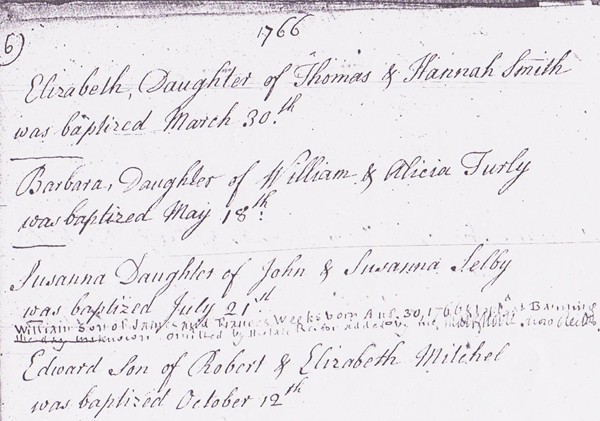 6)
1766
Elizabeth, Daughter of Thomas & Hannah Smith
was baptized March 30.th
Barbara, Daughter of William & Alicia Turly
was baptized May 18th.
Susanna Daughter of John & Susanna Selby
was baptized July 21st
William Son of James and Frances Weeks born Aug. 30, 1766
the day unknown, omitted by the late Rector added by me
Edward Son of Robert & Elizabeth Mitchel
was baptized October 12th